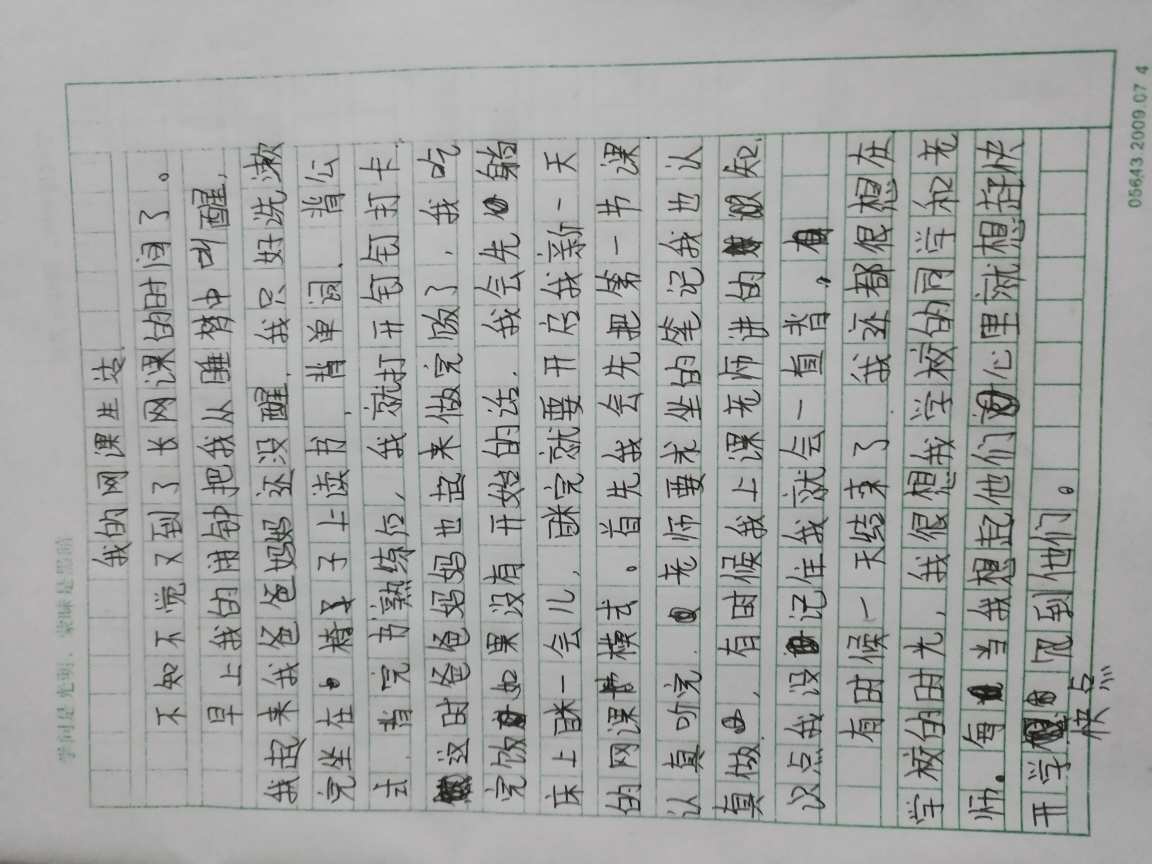 学问是光明，蒙昧是黑暗
我的网课生活
不知不觉又到了长网课的时间了。
早上我的闹钟把我从睡梦中叫醒，
我起来我爸爸妈妈还没醒，我只好洗漱
完坐在椅子上读书，背单词，背公
式，背完书熟练后，我就打开钉钉打卡，
这时爸爸妈妈也起来做完饭了，我吃
完饭如果没有开始的话，我会先躺
床上眯一会儿，眯完就要开启我新一天
的网课模式。首先我会先把第一节课
认真听完，老师要求坐的笔记我也认
真做，有时候我上课老师讲的知
识点我没记住我就会一直背，
有时候一天结束了，我还都很想在
学校的时光，我很想我学校的同学和老
师。每当我想起他们心里就想赶快
开学快点见到他们。
05643 2009.07 4